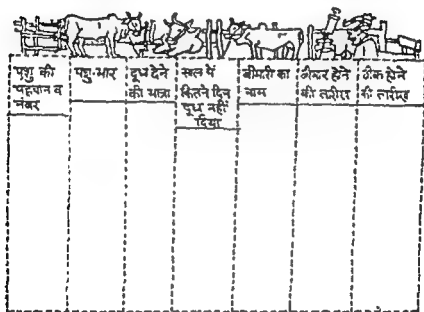 पशु की
पहचान व
नंबर
पशु-भार
दूध देने
की मात्रा
साल में
कितने दिन
दूध नहीं
दिया
बीमारी का
नाम
बीमार होने
की तारीख
ठीक होने
की तारीख